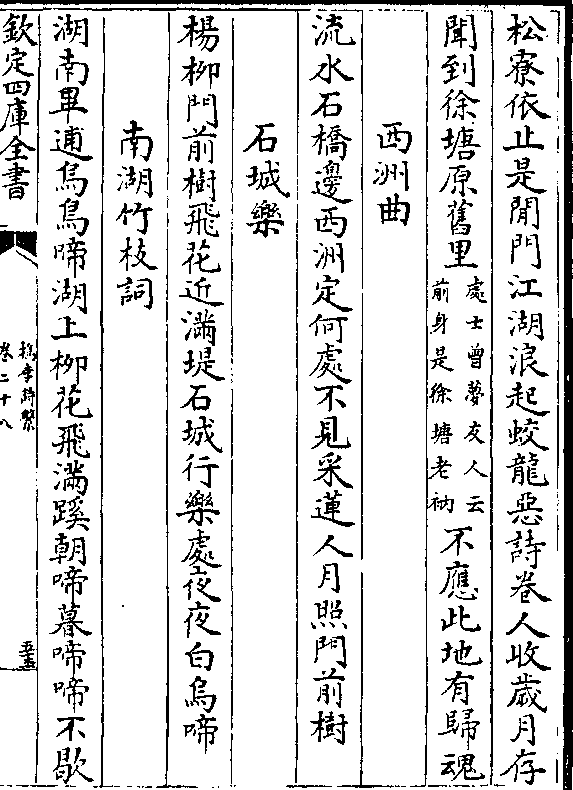 松寮依止是閒門江湖浪起蛟龍惡詩卷人收歲月存
聞到徐塘原舊里處士曾夢友人云前身是徐塘老衲不應此地有歸魂
西洲曲
流水石橋邊西洲定何處不見采蓮人月照門前樹
石城樂
楊柳門前樹飛花近滿堤石城行樂處夜夜白烏啼
南湖竹枝詞
湖南畢逋烏烏啼湖上柳花飛滿蹊朝啼暮啼啼不歇
欽定四庫全書
檇李詩繫
卷二十八